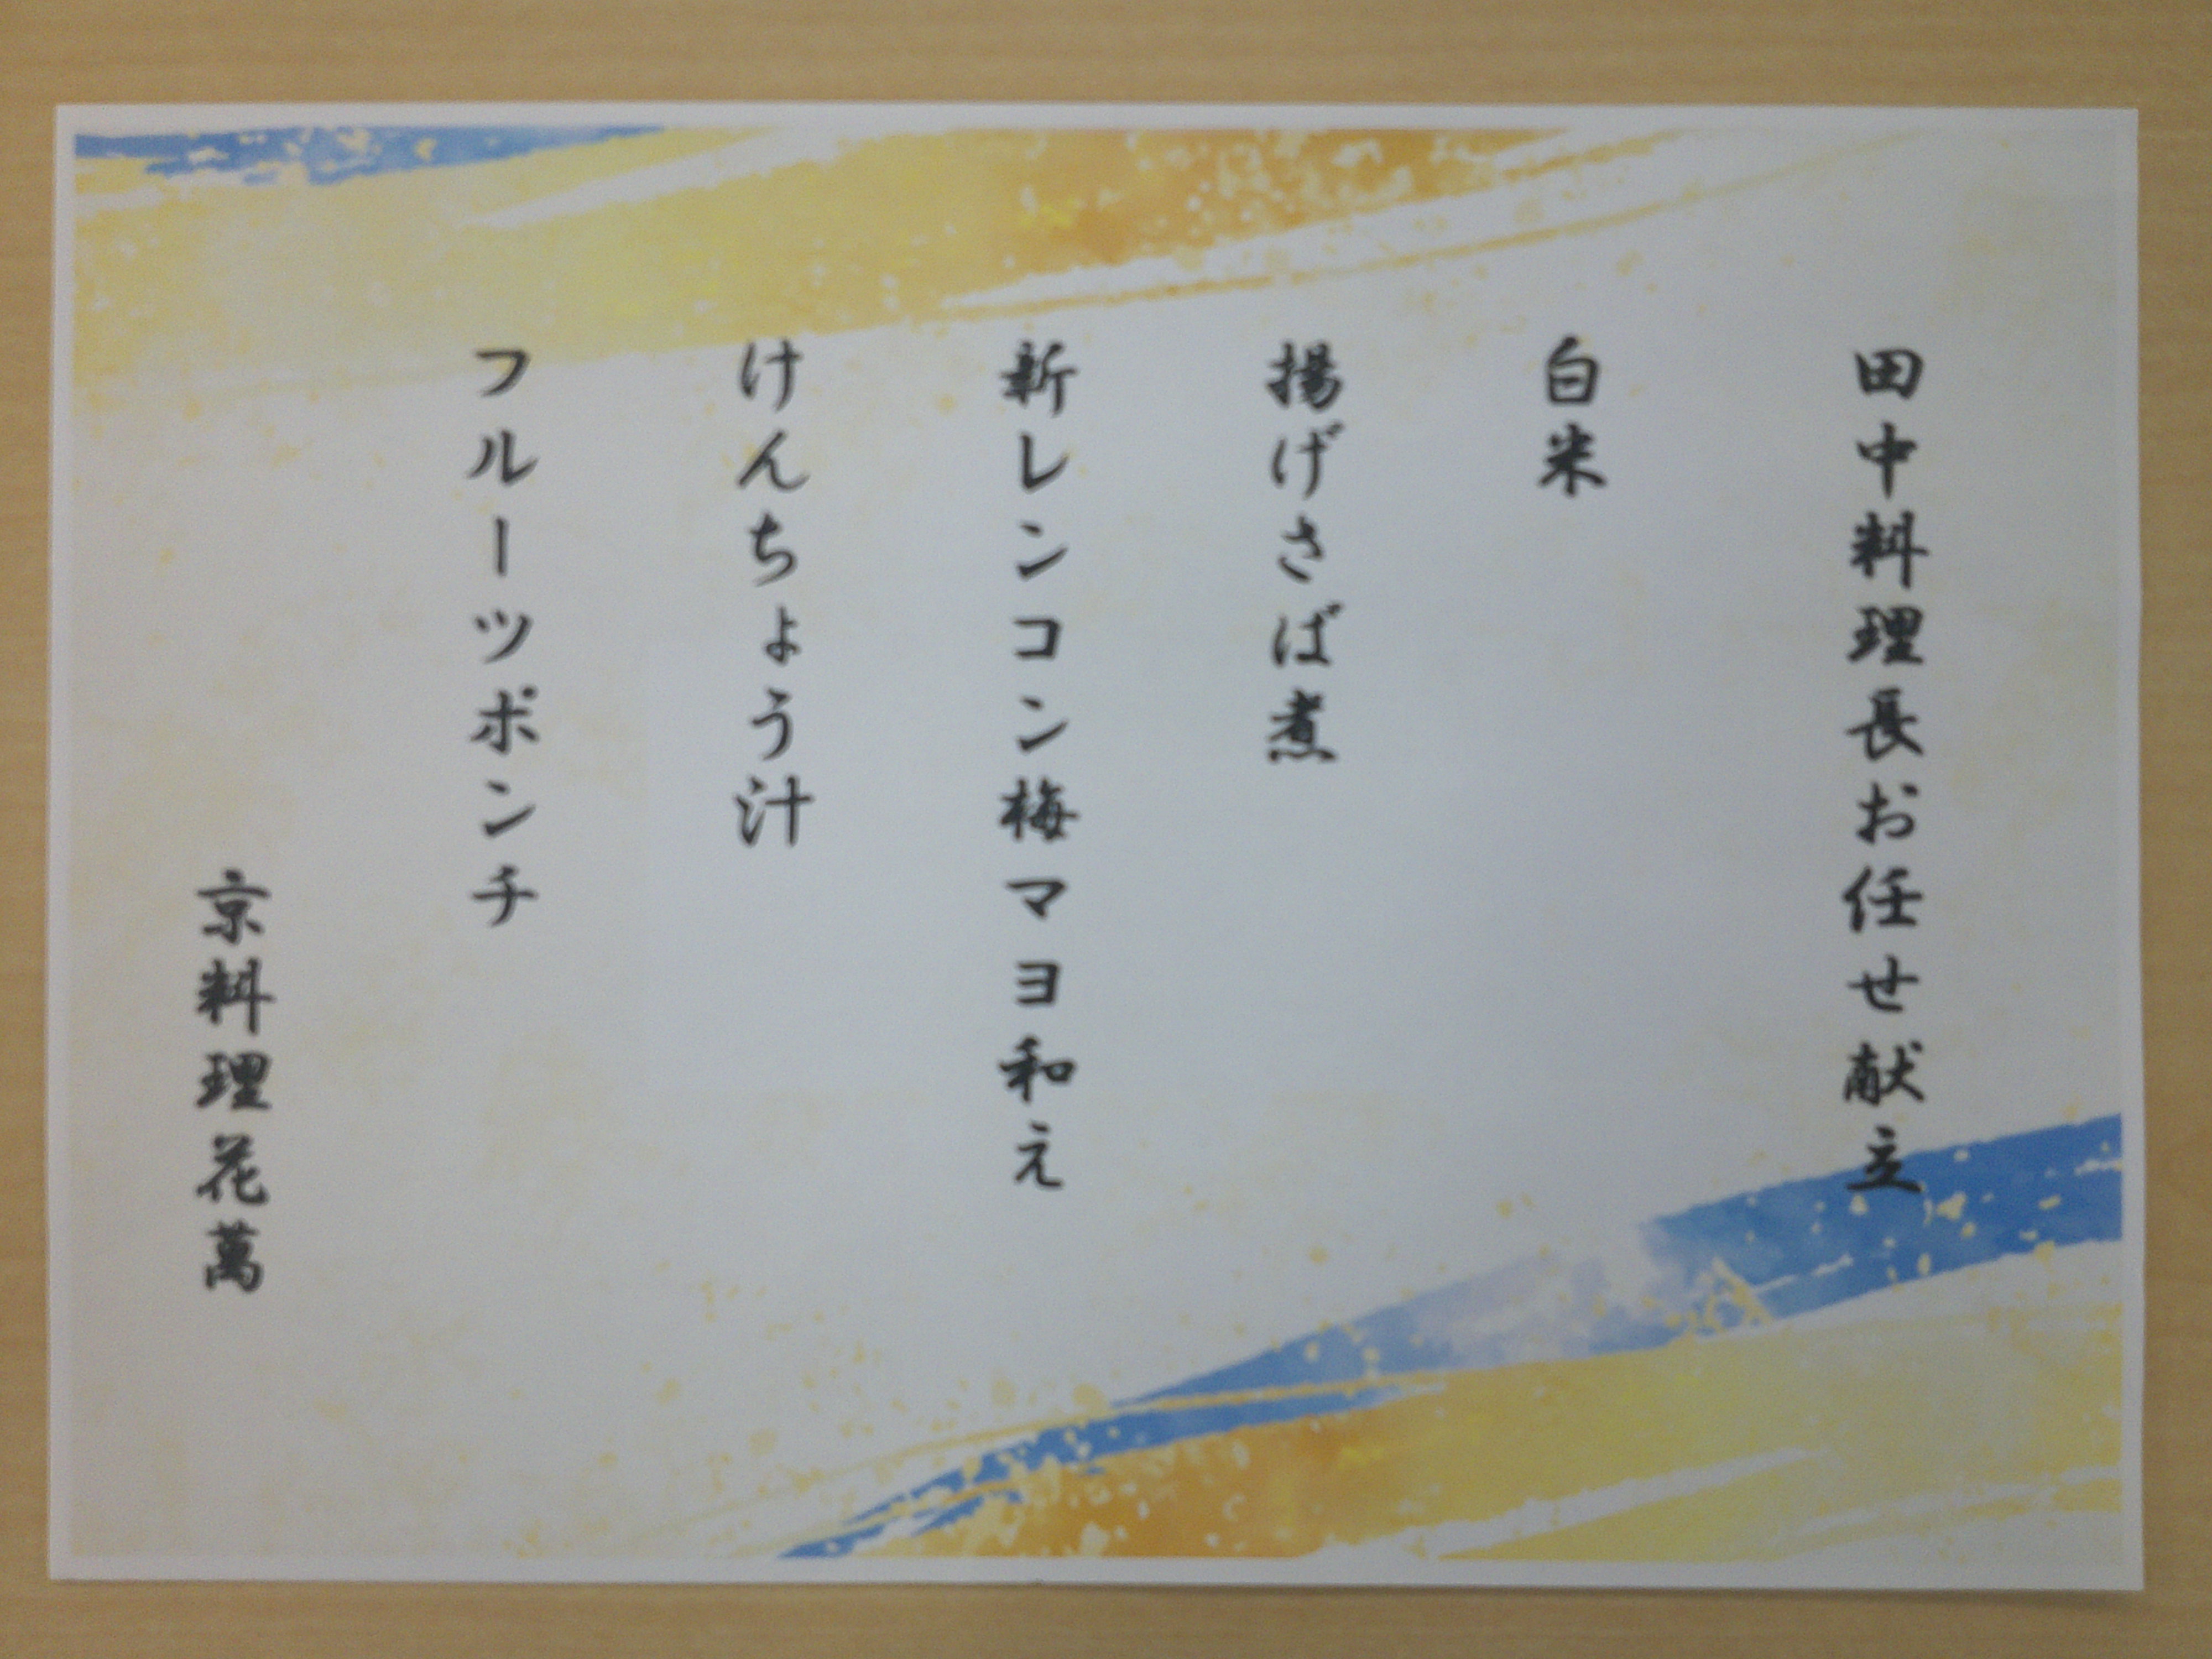 田中料理長お任せ献立
白米
揚げさば煮
新レンコン梅マヨ和え
けんちょう汁
フルーツポンチ
京料理花萬